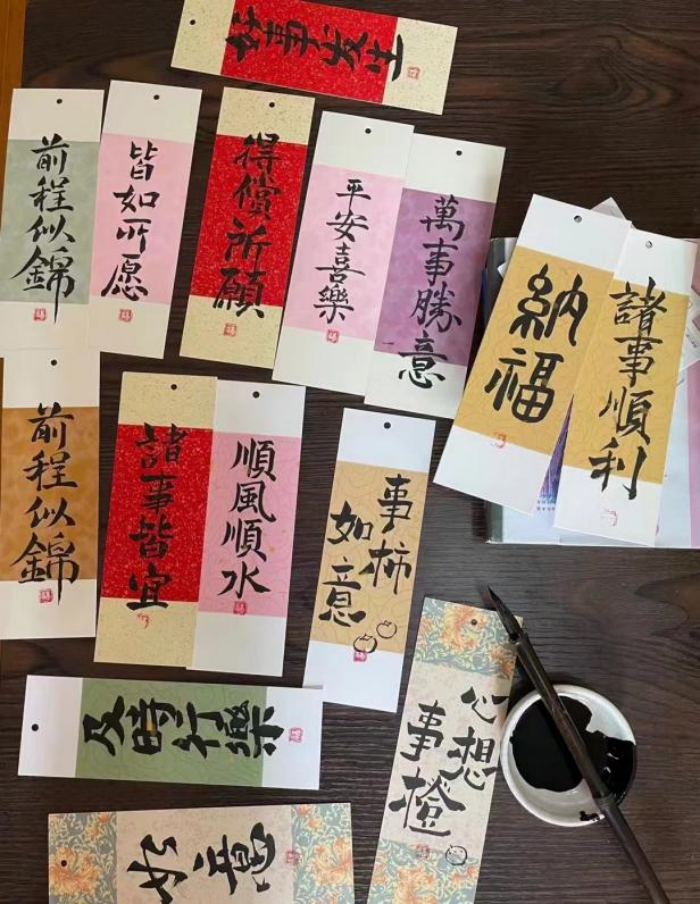 好事发生
前程似錦
皆如所愿
得償所願
平安喜樂
萬事勝意
納福
諸事順利
前程似錦
諸事皆宜
順風順水
事柿
如意
及時行樂
心想
事橙
如意